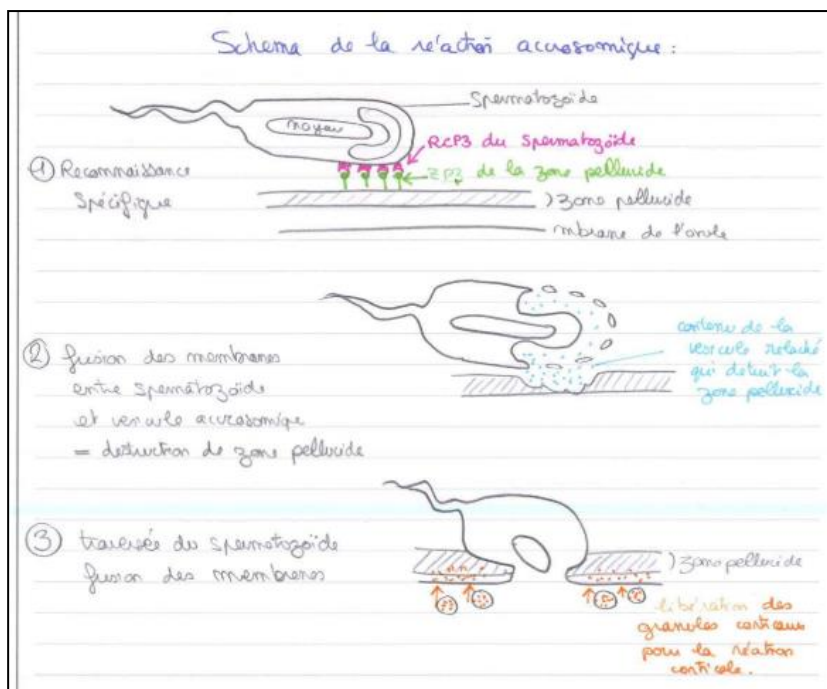 Schema de la réaction accrosomique :
Spermatozoïde
noyau
RCP3 du spermatozoïde
① Reconnaissance
ZP3 de la zone pellucide
Spécifique
) zone pellucide
mbrane de l'ovule
② fusion des membranes
entre spermatozoïde
et vesicule accrosomique
= destruction de zone pellucide
contenu de la
vesicule relaché
qui detruit la
zone pellucide
③ traversée du spermatozoïde
fusion des membranes
) zone pellucide
libération des
granules corticaux
pour la réation
corticale.